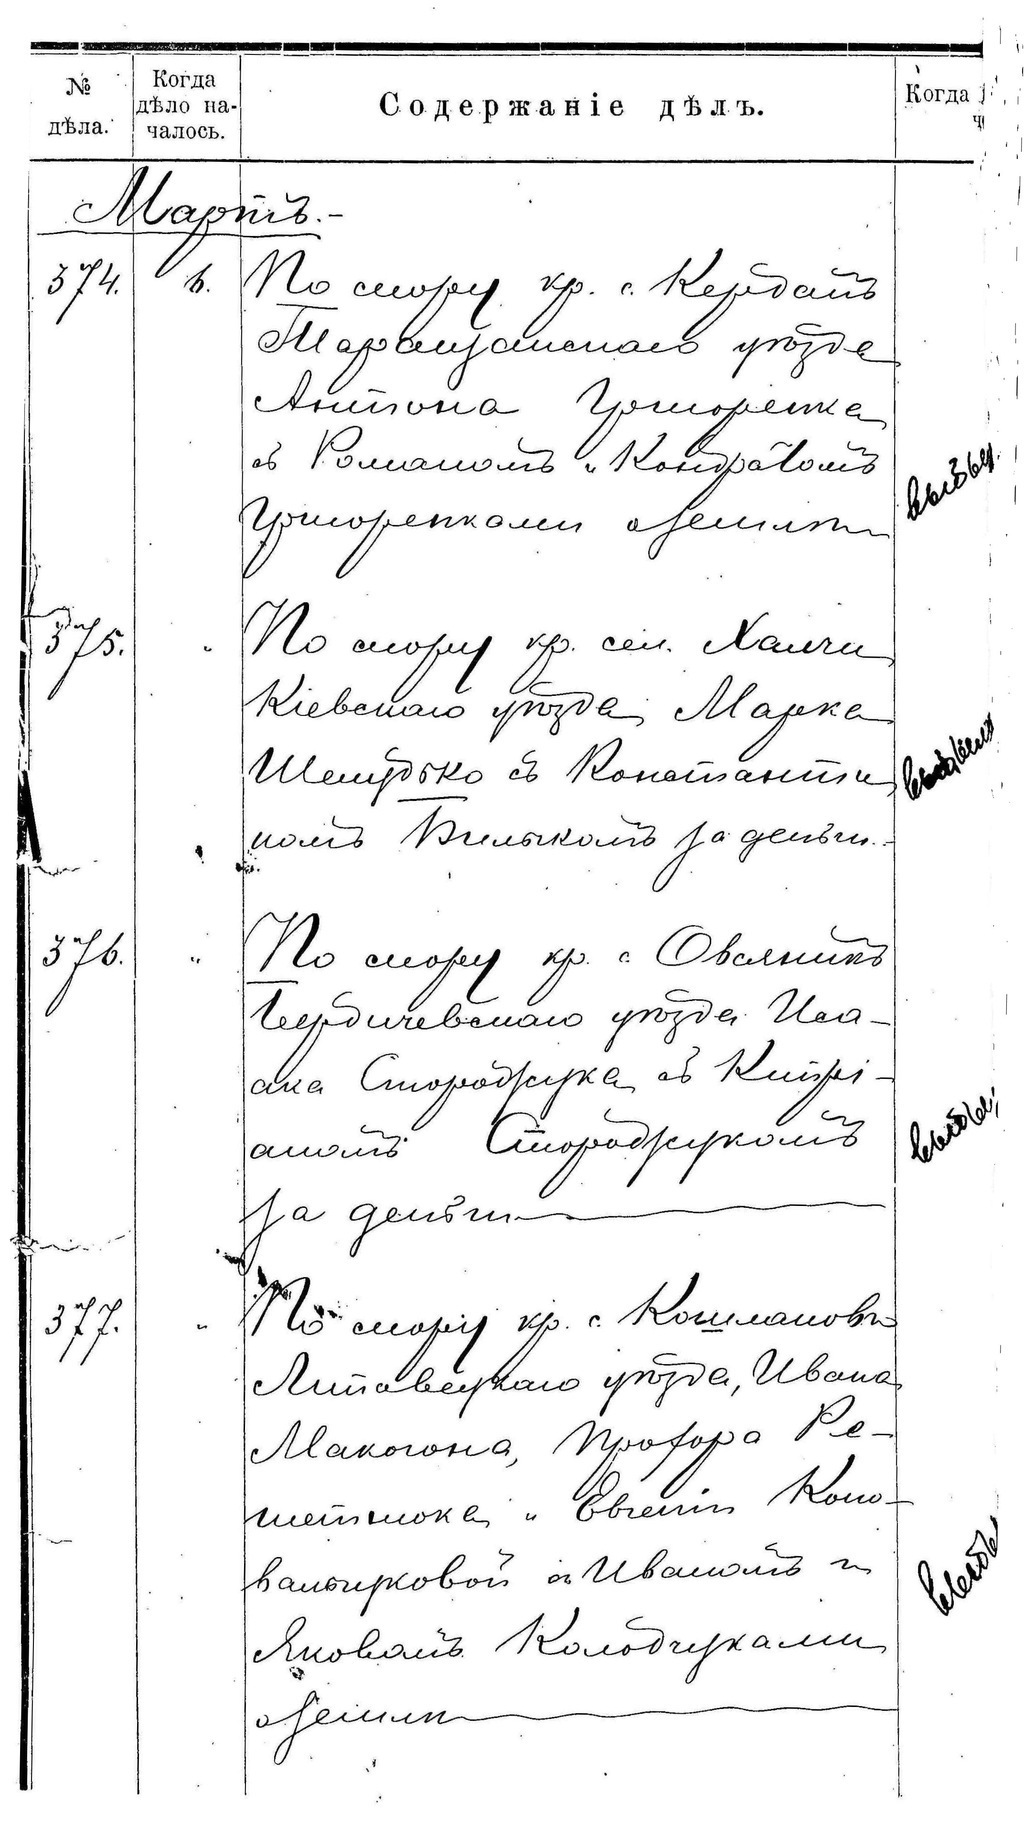 № дѣла.
Когда дѣло началось.
Содержаніе дѣлъ.
Когда
Мартъ.
374. 6. По спору кр. с. Керданъ
Таращанскаго уѣзда
Антона Григоренка
съ Романомъ и Кондратомъ
Григоренками о землѣ
375. " По спору кр. сел. Халчи
Кіевскаго уѣзда Марка
Шелудько съ Константи
номъ Билыкомъ за деньги.
376. " По спору кр. с. Овсяникъ
Бердичевскаго уѣзда Иса-
ака Сторожука съ Кипрі-
аномъ Сторожукомъ
за деньги
377. " По спору кр. с. Кошлановъ
Липовецкаго уѣзда, Ивана
Макогона, Профора Ре-
шетнюка и Евгеніи Коно-
вальчуковой съ Иваномъ и
Яковомъ Колодчуками
о землѣ